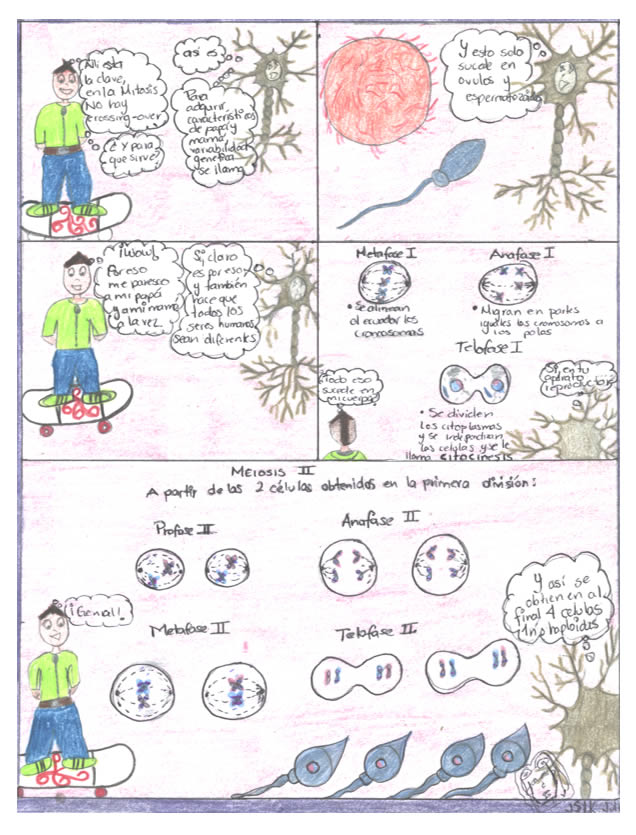 Ahi esta
la clave,
en la Mitosis
No hay
crossing-over
¿Y para
que sirve?
así es
Para
adquirir
características
de papá y
mamá,
variabilidad
genetica
se llama
Y esto solo
sucede en
ovulos y
espermatozoides
¡Wow!
Por eso
me paresco
a mi papá
y a mi mamá
a la vez.
Si, claro
es por eso
y también
hace que
todos los
seres humanos
sean diferentes
Metafase I
• Se alinean
al ecuador los
cromosomas
Anafase I
• Migran en partes
iguales los cromosomas a
los polos
Telofase I
• Se dividen
los citoplasmas
y se
las celulas y se le
llama citocinesis
¿Todo eso
sucede en
mi cuerpo?
Si, en tu
aparato
reproductor
MEIOSIS II
A partir de las 2 células obtenidas en la primera división:
Profase II
Anafase II
Metafase II
Telofase II
¡Genial!
Y así se
obtienen al
final 4 celulas
"1n" haploides